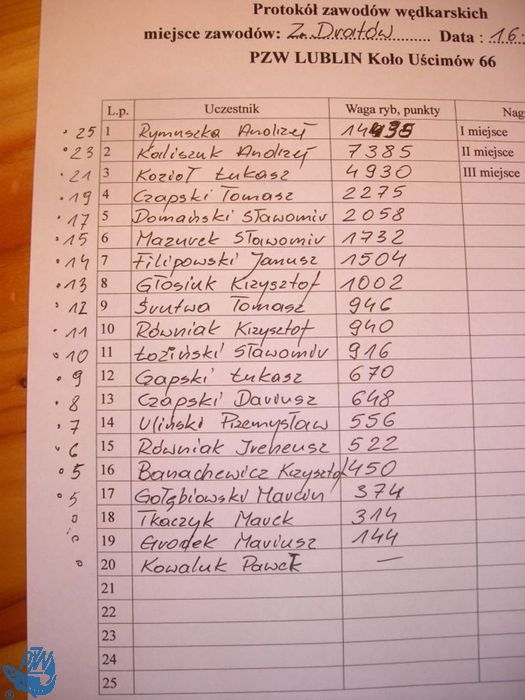 Protokół zawodów wędkarskich
miejsce zawodów: Zn. Dratów Data : 16.
PZW LUBLIN Koło Uścimów 66
L.p. Uczestnik Waga ryb, punkty Nag
• 25 1 Rymuszka Andrzej I miejsce
• 23 2 Kaliszuk Andrzej 7385 II miejsce
• 21 3 Kozioł Łukasz 4930 III miejsce
• 19 4 Czapski Tomasz 2275
• 17 5 Domański Sławomir 2058
• 15 6 Mazurek Sławomir 1732
• 14 7 Filipowski Janusz 1504
• 13 8 Głosiuk Krzysztof 1002
• 12 9 Śrutwa Tomasz 946
• 11 10 Równiak Krzysztof 940
• 10 11 Łoziński Sławomir 916
• 9 12 Czapski Łukasz 670
• 8 13 Czapski Dariusz 648
• 7 14 Uliński Przemysław 556
• 6 15 Równiak Ireneusz 522
• 5 16 Banachewicz Krzysztof 450
• 5 17 Gołębiowski Marcin 374
18 Tkaczyk Marek 314
19 Grodek Mariusz 144
20 Kowaluk Paweł —
21
22
23
24
25
PZW
®